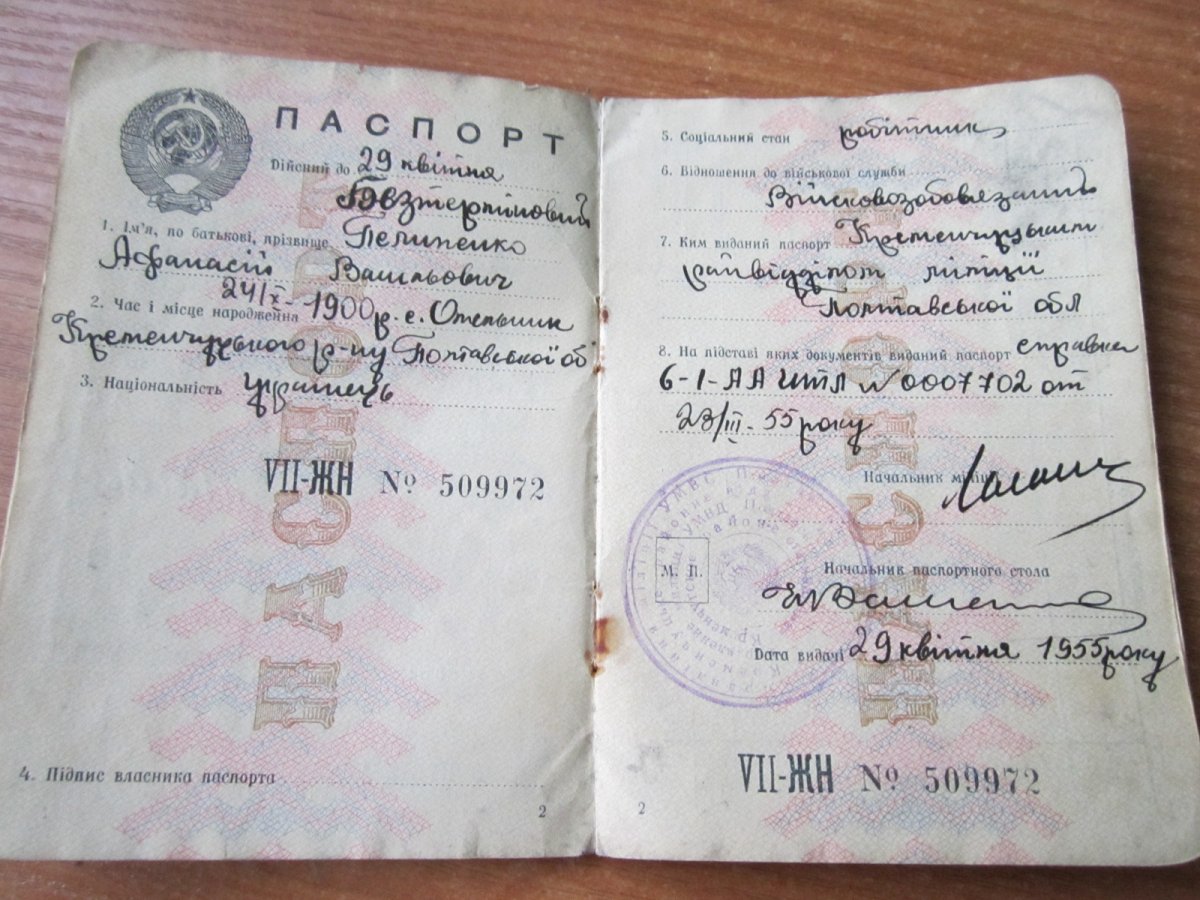 ПАСПОРТ
Дійсний до 29 квітня
Безтерміновий
1. Ім'я, по батькові, прізвище Пелипенко
Афанасій Васильович
24/X - 1900 р. с. Омельник
2. Час і місце народження
Кременчуцького р-ну Полтавської об
3. Національність українець
VII-ЖН № 509972
4. Підпис власника паспорта
2
5. Соціальний стан робітник
6. Відношення до військової служби
Військовозобовязаний
7. Ким виданий паспорт Кременчуцьким
райвідділом міліції
Полтавської обл
8. На підставі яких документів виданий паспорт справки
6-1-АА ИТЛ № 0007702 от
23/III - 55 року
Начальник міліції
М. П.
Начальник паспортного стола
Дата видачі 29 квітня 1955 року
VII-ЖН № 509972
2